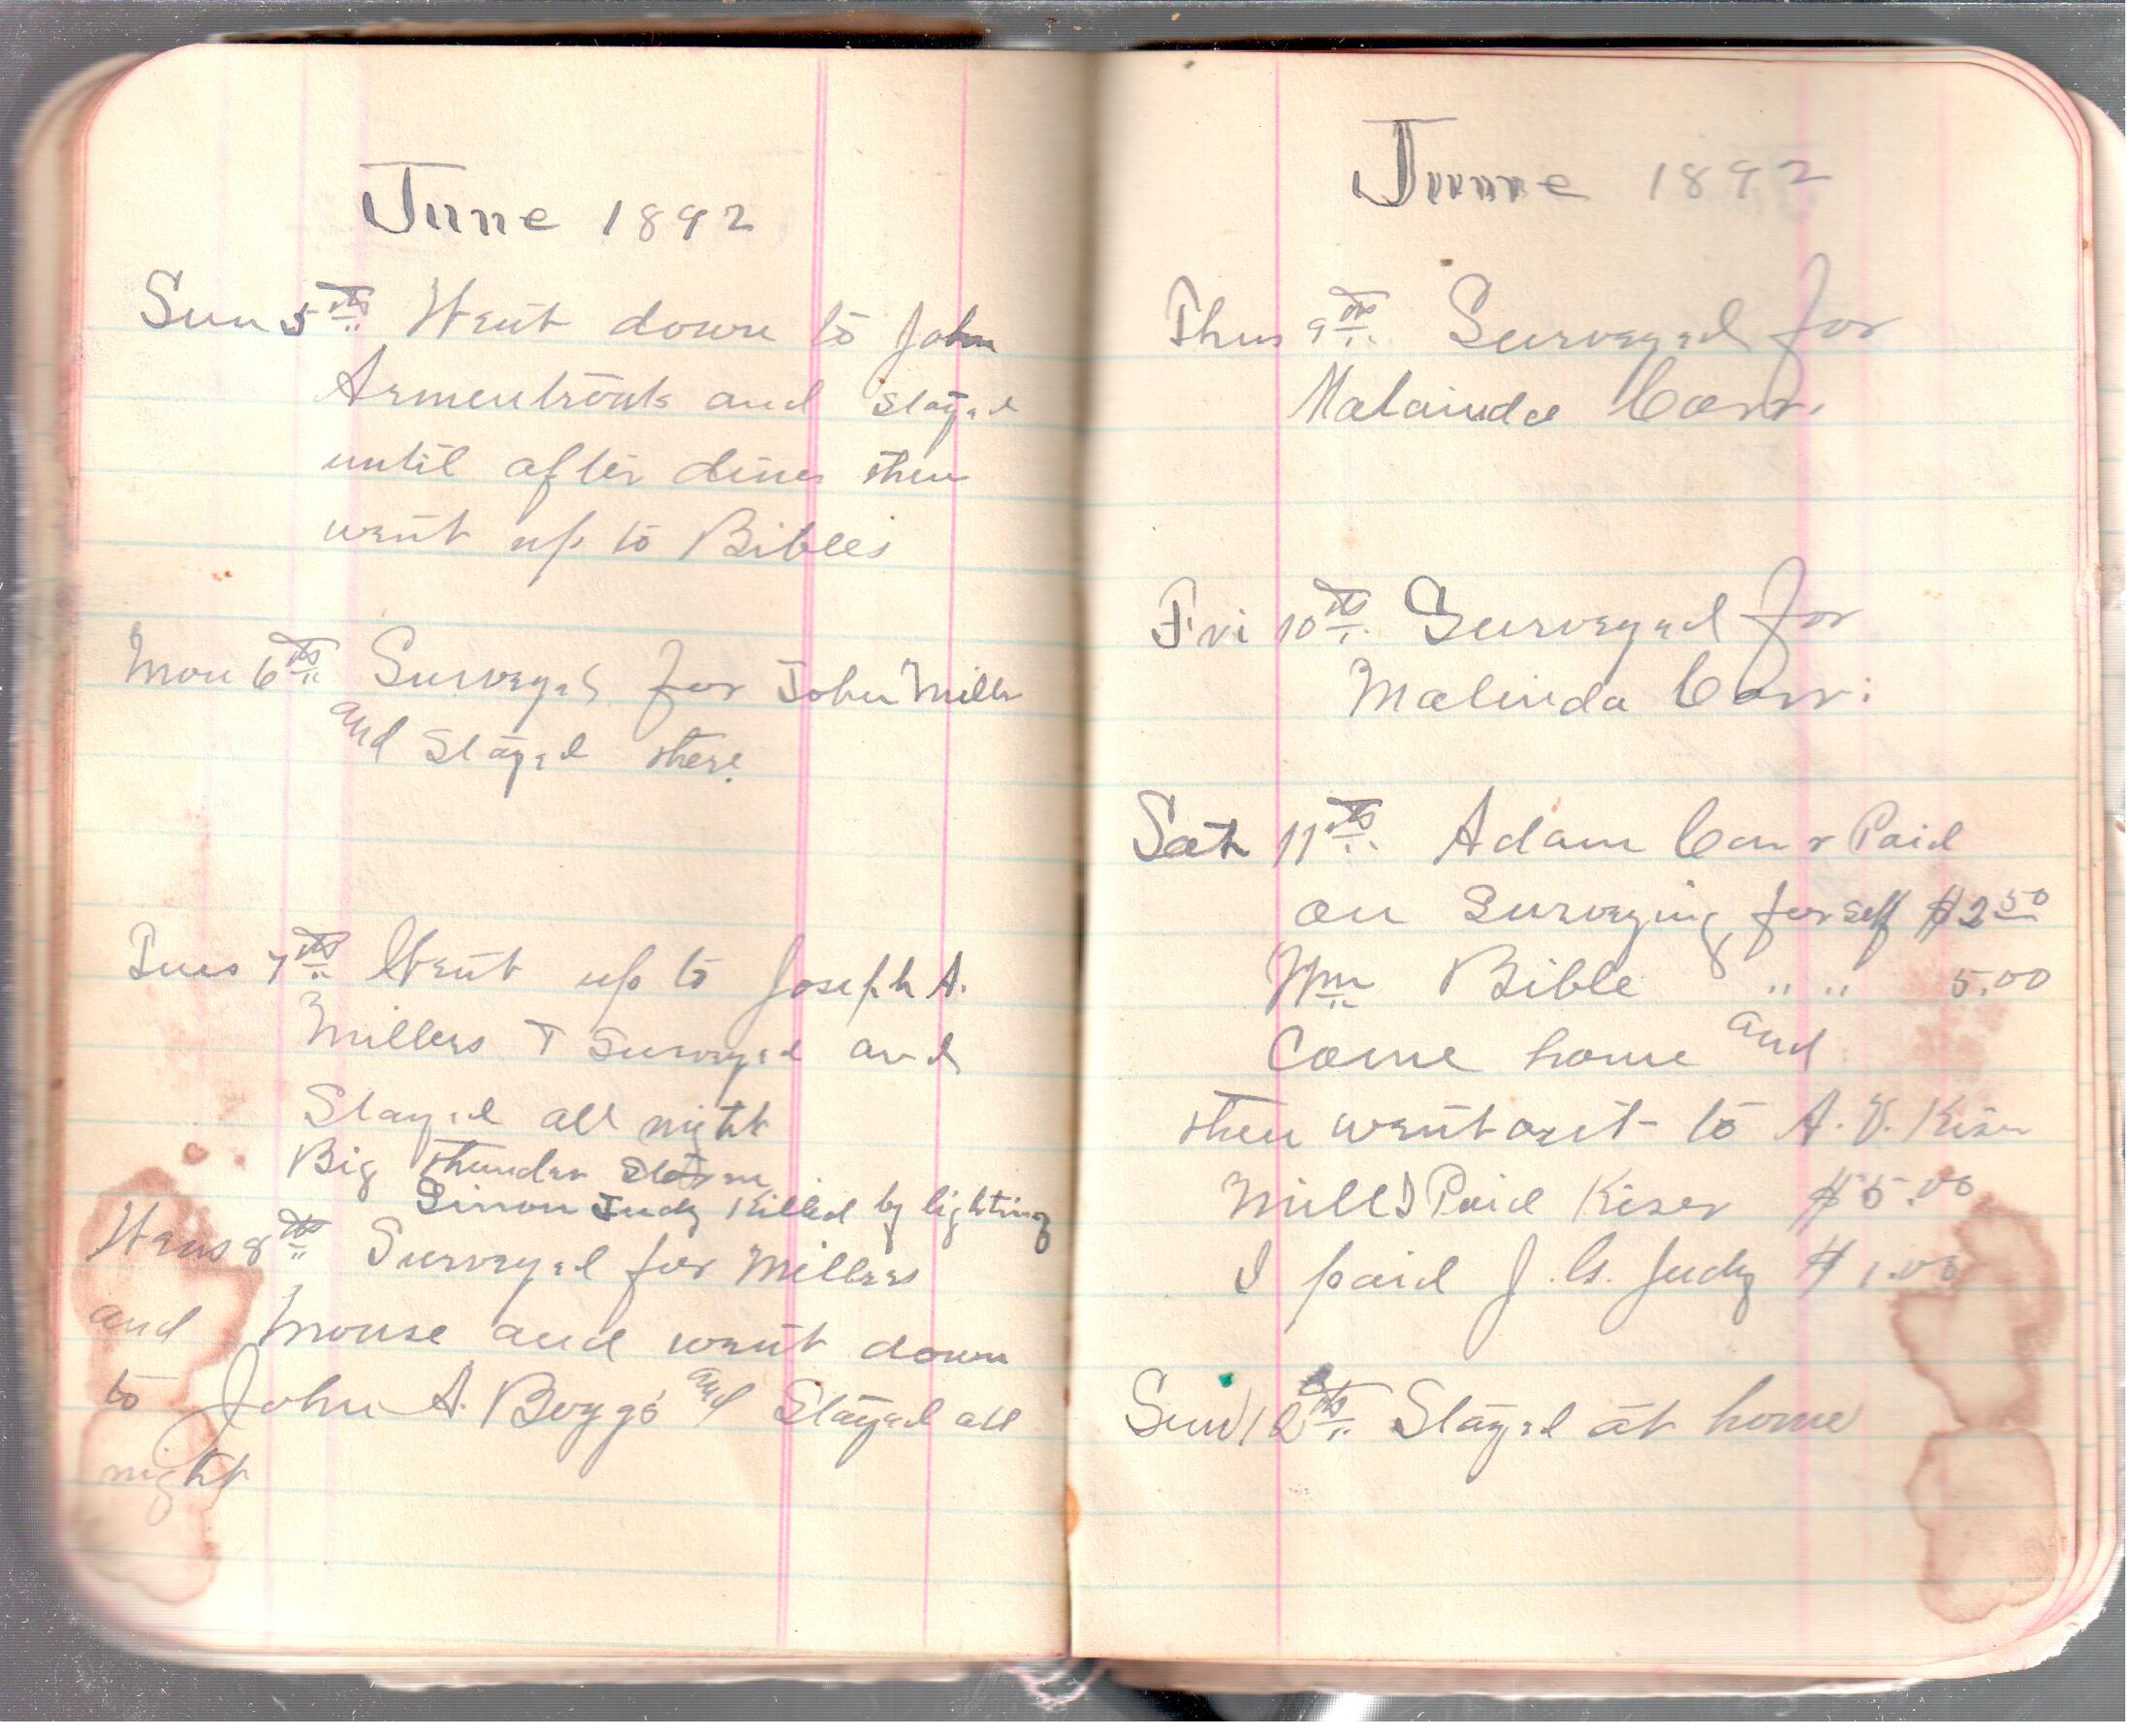 June 1892
Sun 5th Went down to John
Armentrouts and stayed
until after diner then
went up to Bibles
Mon 6th Surveyed for John Mills
and stayed there.
Tues 7th Went up to Joseph A.
Millers & Surveyed and
Stayed all night
Big Thunder Storm
Simon Judy Killed by lighting
Wens 8th Surveyed for Millers
and Mouse and went down
to John A. Boggs and Stayed all
night
June 1892
Thus 9th Surveyed for
Malainda Carr.
Fri 10th Surveyed for
Malinda Carr.
Sat 11th Adam Carr Paid
on Surveying for self $2 50
Wm Bible " " 5.00
Come home and
then went out to A. V. Kiser
Mill I Paid Kiser $5.00
I paid J. G. Judy $1.00
Sun 12th Stayed at home